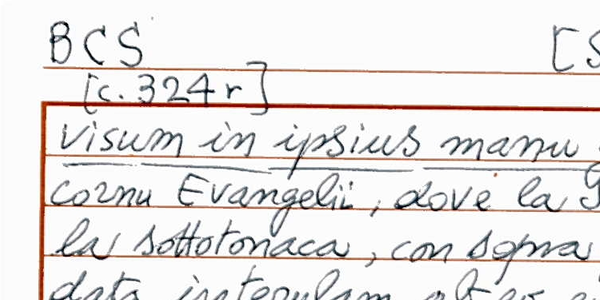 BCS [S
[c. 324 r]
visum in ipsius manu
cornu Evangelii, dove la
la sottotonaca, con sopra
data interulam